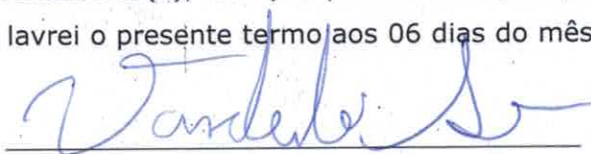 lavrei o presente termo aos 06 dias do mês